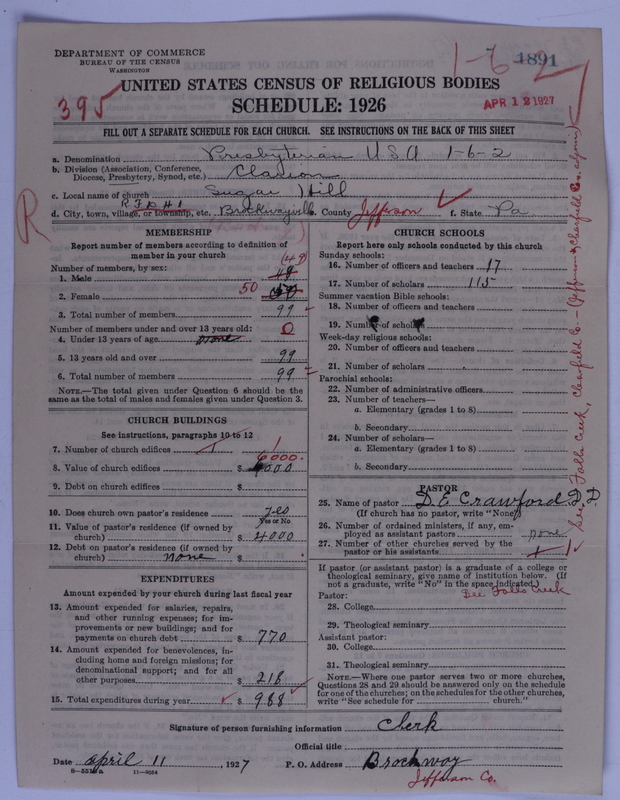 DEPARTMENT OF COMMERCE
BUREAU OF THE CENSUS
WASHINGTON
1-6-2
1891
395
UNITED STATES CENSUS OF RELIGIOUS BODIES
SCHEDULE: 1926
APR 12 1927
FILL OUT A SEPARATE SCHEDULE FOR EACH CHURCH. SEE INSTRUCTIONS ON THE BACK OF THIS SHEET
a. Denomination Presbyterian USA 1-6-2
b. Division (Association, Conference, Diocese, Presbytery, Synod, etc.) Clarion
c. Local name of church Sugar Hill
R F D # 1
d. City, town, village, or township, etc. Brockwayville e. County Jefferson f. State Pa
R
MEMBERSHIP
Report number of members according to definition of member in your church
Number of members, by sex:
(49)
1. Male 49
2. Female 50
3. Total number of members 99
Number of members under and over 13 years old:
0
4. Under 13 years of age none
5. 13 years old and over 99
6. Total number of members 99
NOTE.—The total given under Question 6 should be the same as the total of males and females given under Question 3.
CHURCH BUILDINGS
See instructions, paragraphs 10 to 12
7. Number of church edifices 1 1
6000.
8. Value of church edifices $ 6000
9. Debt on church edifices $
10. Does church own pastor's residence yes
Yes or No
11. Value of pastor's residence (if owned by church) $ 4000
12. Debt on pastor's residence (if owned by church) none $
EXPENDITURES
Amount expended by your church during last fiscal year
13. Amount expended for salaries, repairs, and other running expenses; for improvements or new buildings; and for payments on church debt $ 770
14. Amount expended for benevolences, including home and foreign missions; for denominational support; and for all other purposes $ 218
15. Total expenditures during year $ 988
CHURCH SCHOOLS
Report here only schools conducted by this church
Sunday schools:
16. Number of officers and teachers 17
17. Number of scholars 115
Summer vacation Bible schools:
18. Number of officers and teachers
19. Number of scholars
Week-day religious schools:
20. Number of officers and teachers
21. Number of scholars
Parochial schools:
22. Number of administrative officers
23. Number of teachers—
a. Elementary (grades 1 to 8)
b. Secondary
24. Number of scholars—
a. Elementary (grades 1 to 8)
b. Secondary
PASTOR
25. Name of pastor D. E. Crawford D. D
(If church has no pastor, write "None")
26. Number of ordained ministers, if any, employed as assistant pastors none
27. Number of other churches served by the pastor or his assistants 1
See Falls Creek, Clearfield Co.
If pastor (or assistant pastor) is a graduate of a college or theological seminary, give name of institution below. (If not a graduate, write "No" in the space indicated.)
Pastor: See Falls Creek
28. College
29. Theological seminary
Assistant pastor:
30. College
31. Theological seminary
NOTE.—Where one pastor serves two or more churches, Questions 28 and 29 should be answered only on the schedule for one of the churches; on the schedules for the other churches, write "See schedule for church."
Signature of person furnishing information Clerk
Official title
Date april 11, 1927 P. O. Address Brockway
Jefferson Co.
11—9034